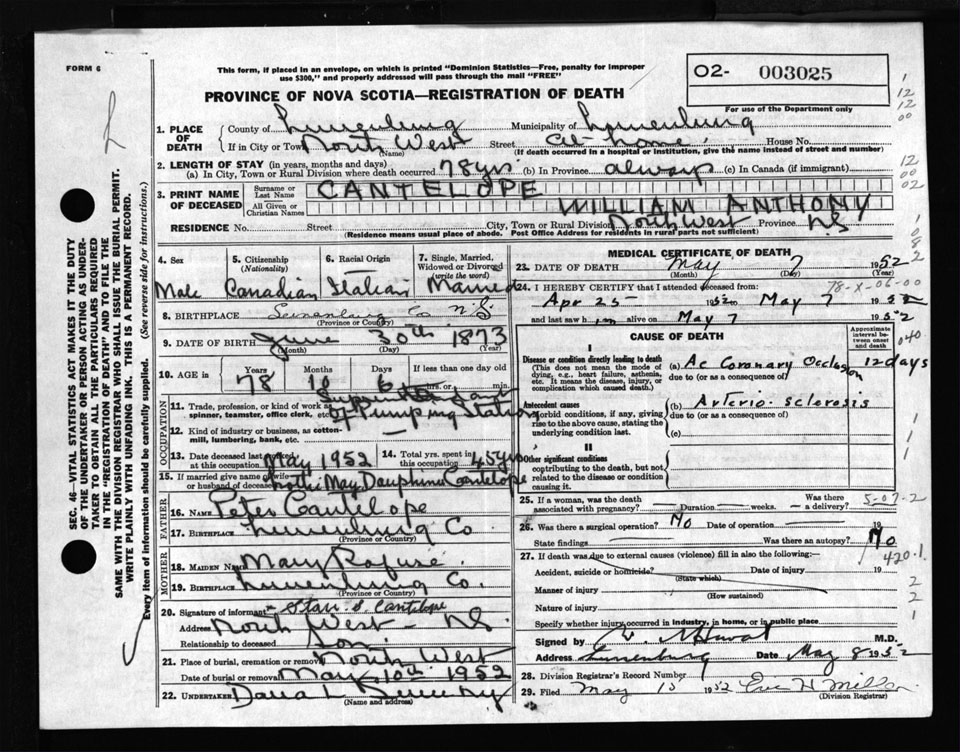 FORM 6
This form, if placed in an envelope, on which is printed "Dominion Statistics—Free, penalty for improper
use $300," and properly addressed will pass through the mail "FREE"
O2- 003025
For use of the Department only
PROVINCE OF NOVA SCOTIA—REGISTRATION OF DEATH
1. PLACE OF DEATH
County of Lunenburg Municipality of Lunenburg
If in City or Town North West (Name) Street At home House No.
(If death occurred in a hospital or institution, give the name instead of street and number)
2. LENGTH OF STAY (in years, months and days)
(a) In City, Town or Rural Division where death occurred 78 yrs (b) In Province always (c) In Canada (if immigrant)
3. PRINT NAME OF DECEASED
Surname or Last Name CANTELOPE
All Given or Christian Names WILLIAM ANTHONY
RESIDENCE No. Street City, Town or Rural Division North West Province N.S
(Residence means usual place of abode. Post Office Address for residents in rural parts not sufficient)
4. Sex
Male
5. Citizenship (Nationality)
Canadian
6. Racial Origin
Italian
7. Single, Married, Widowed or Divorced (write the word)
Married
8. BIRTHPLACE Lunenburg Co N.S.
(Province or Country)
9. DATE OF BIRTH June 30th 1873
(Month) (Day) (Year)
10. AGE Years Months Days If less than one day
78 10 6 hrs. or min.
OCCUPATION
11. Trade, profession, or kind of work as spinner, teamster, office clerk, etc. Superintendant of Pumping Station
12. Kind of industry or business, as cotton-mill, lumbering, bank, etc.
13. Date deceased last worked at this occupation May 1952
14. Total yrs. spent in this occupation 45 yrs
15. If married give name of wife or husband of deceased Lottie May Dauphinee Cantelope
FATHER
16. NAME Peter Cantelope
17. BIRTHPLACE Lunenburg Co.
(Province or Country)
MOTHER
18. MAIDEN NAME Mary Rafuse
19. BIRTHPLACE Lunenburg Co.
(Province or Country)
20. Signature of informant Starr S. Cantelope
Address North West - N.S.
Relationship to deceased Son.
21. Place of burial, cremation or removal North West
Date of burial or removal May 10th 1952
22. UNDERTAKER
(Name and address)
MEDICAL CERTIFICATE OF DEATH
23. DATE OF DEATH May 7 1952
(Month) (Day) (Year)
24. I HEREBY CERTIFY that I attended deceased from
78-X-06-00
Apr 25- 1952 May 7 1952
and last saw him alive on May 7 1952
CAUSE OF DEATH
Approximate interval between onset and death
040
I
Disease or condition directly leading to death
(This does not mean the mode of dying, e.g., heart failure, asthenia, etc. It means the disease, injury, or complication which caused death.)
(a) Ac Coronary Occlusion 12 days
due to (or as a consequence of)
Antecedent causes
Morbid conditions, if any, giving rise to the above cause, stating the underlying condition last.
(b) Arterio-sclerosis
due to (or as a consequence of)
(c)
II
Other significant conditions
contributing to the death, but not related to the disease or condition causing it.
25. If a woman, was the death associated with pregnancy? Duration weeks. Was there a delivery?
5-07-2
26. Was there a surgical operation? No Date of operation 19
State findings Was there an autopsy? No
420.1
27. If death was due to external causes (violence) fill in also the following:—
Accident, suicide or homicide? (State which) Date of injury 19
Manner of injury
(How sustained)
Nature of injury
Specify whether injury occurred in industry, in home, or in public place
Signed by M.D.
Address Lunenburg Date May 8 1952
28. Division Registrar's Record Number
29. Filed May 15 1952
(Division Registrar)
SEC. 46—VITAL STATISTICS ACT MAKES IT THE DUTY
OF THE UNDERTAKER OR PERSON ACTING AS UNDER-
TAKER TO OBTAIN ALL THE PARTICULARS REQUIRED
IN THE "REGISTRATION OF DEATH" AND TO FILE THE
SAME WITH THE DIVISION REGISTRAR WHO SHALL ISSUE THE BURIAL PERMIT.
WRITE PLAINLY WITH UNFADING INK. THIS IS A PERMANENT RECORD.
Every item of information should be carefully supplied. (See reverse side for instructions.)